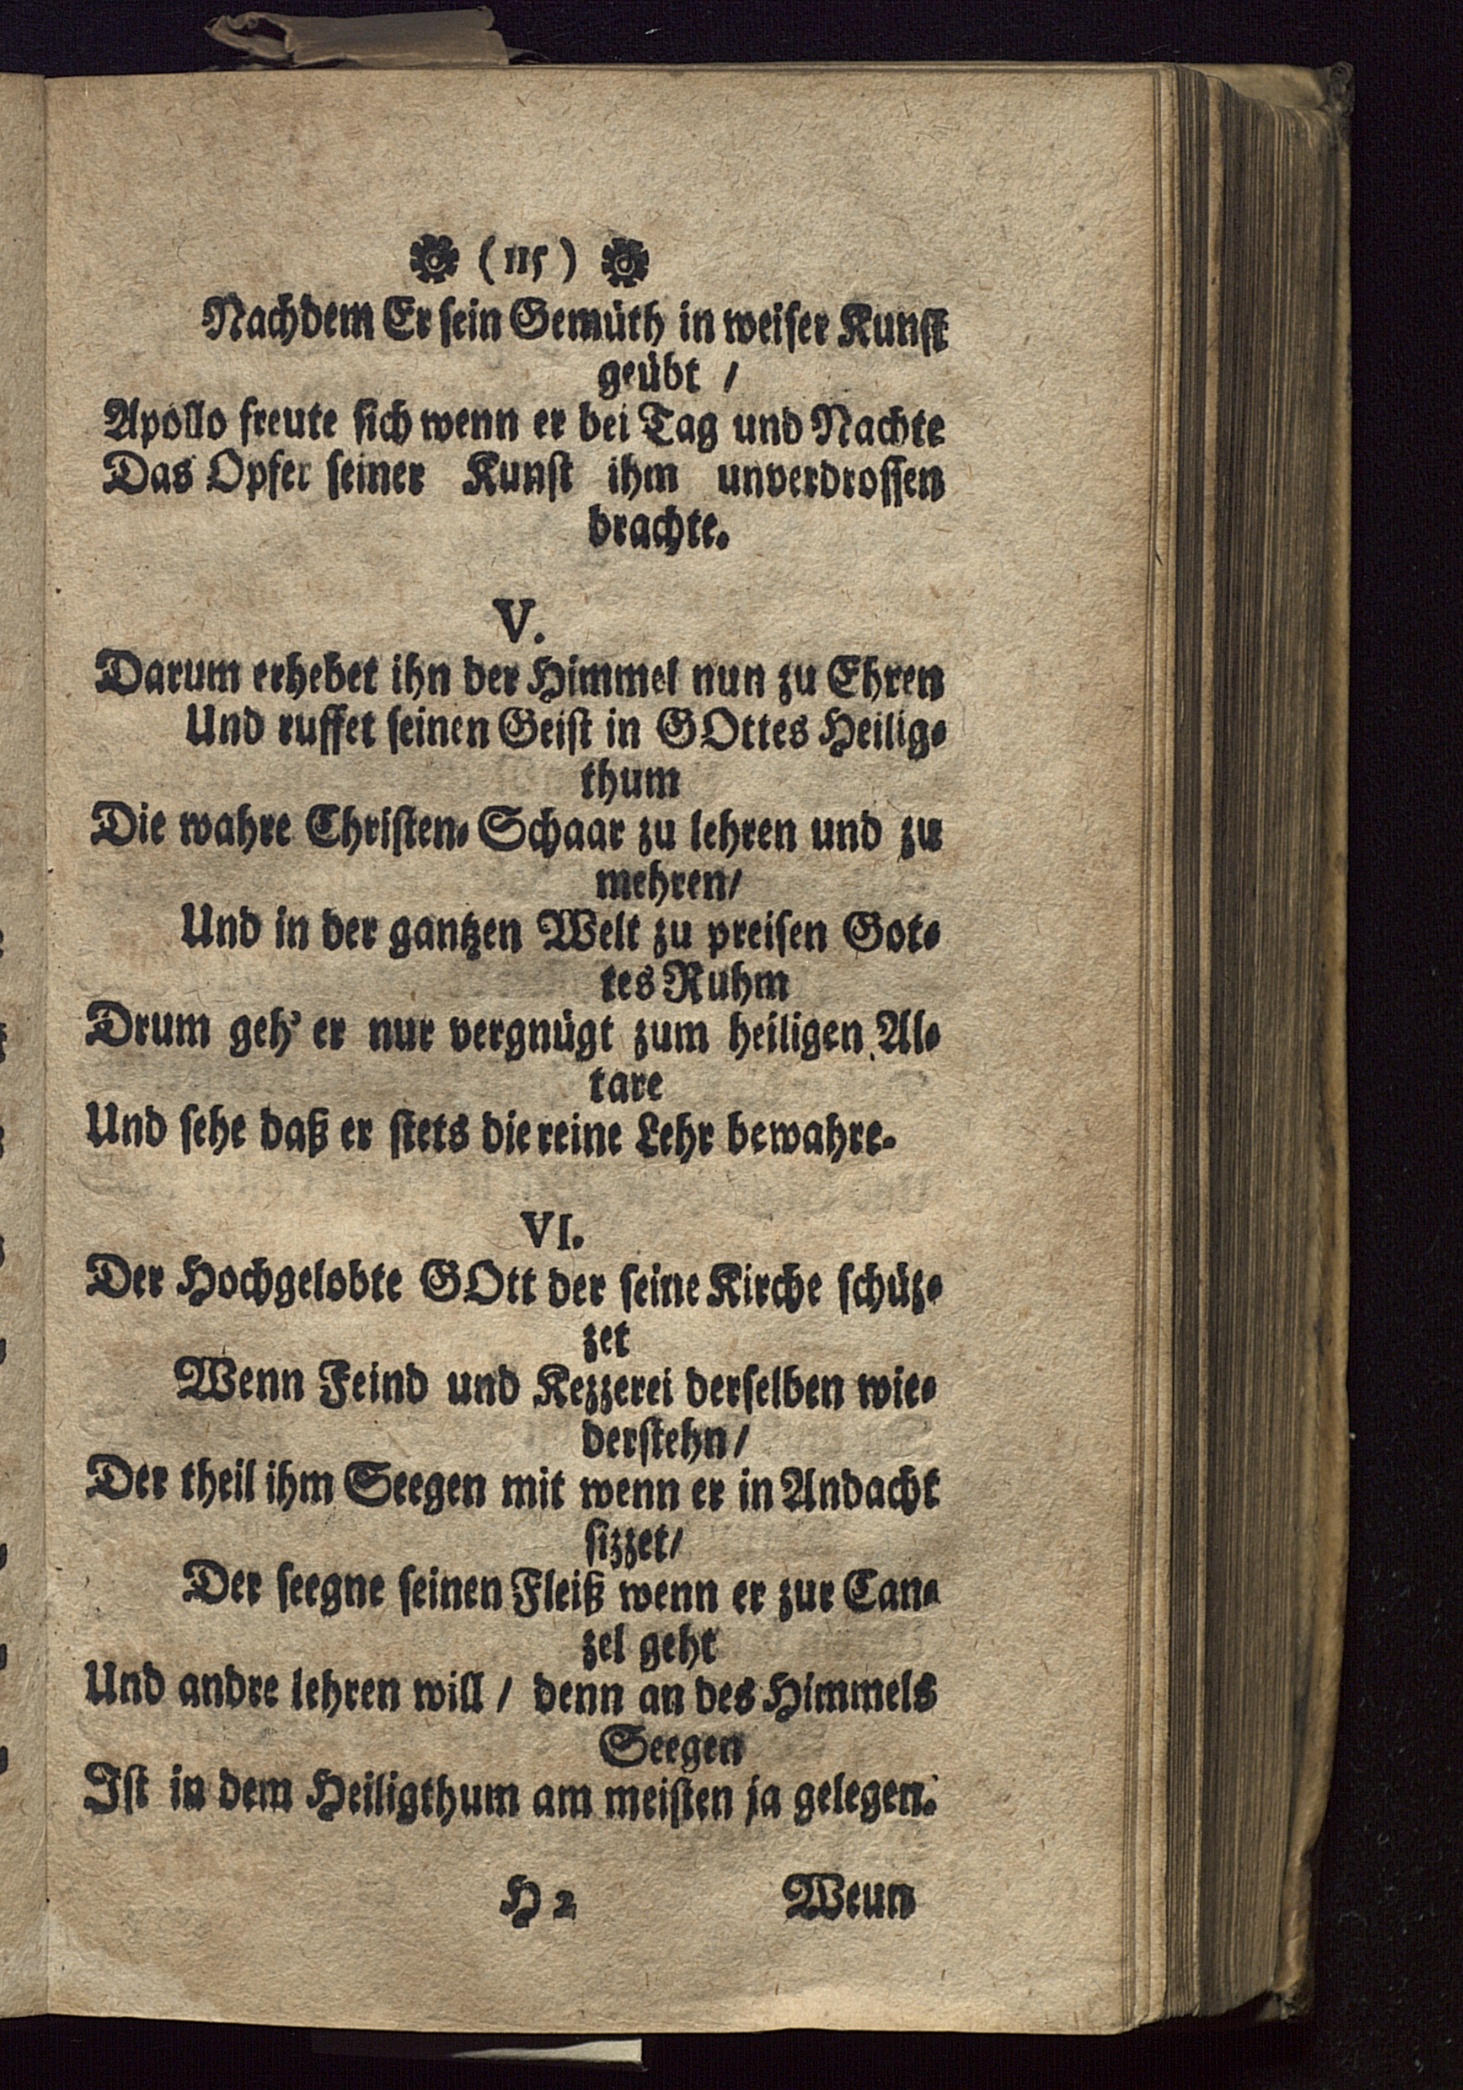 (115)
Nachdem Er sein Gemüth in weiser Kunst
geübt /
Apollo freute sich wenn er bei Tag und Nachte
Das Opfer seiner Kunst ihm unverdrossen
brachte.
V.
Darum erhebet ihn der Himmel nun zu Ehren
Und ruffet seinen Geist in GOttes Heilig-
thum
Die wahre Christen-Schaar zu lehren und zu
mehren/
Und in der gantzen Welt zu preisen Got-
tes Ruhm
Drum geh' er nur vergnügt zum heiligen Al-
tare
Und sehe daß er stets die reine Lehr bewahre.
VI.
Der Hochgelobte GOtt der seine Kirche schüz-
zet
Wenn Feind und Kezzerei derselben wie-
derstehn/
Der theil ihm Seegen mit wenn er in Andacht
sizzet/
Der seegne seinen Fleiß wenn er zur Can-
zel geht
Und andre lehren will / denn an des Himmels
Seegen
Ist in dem Heiligthum am meisten ja gelegen.
H 2 Weun